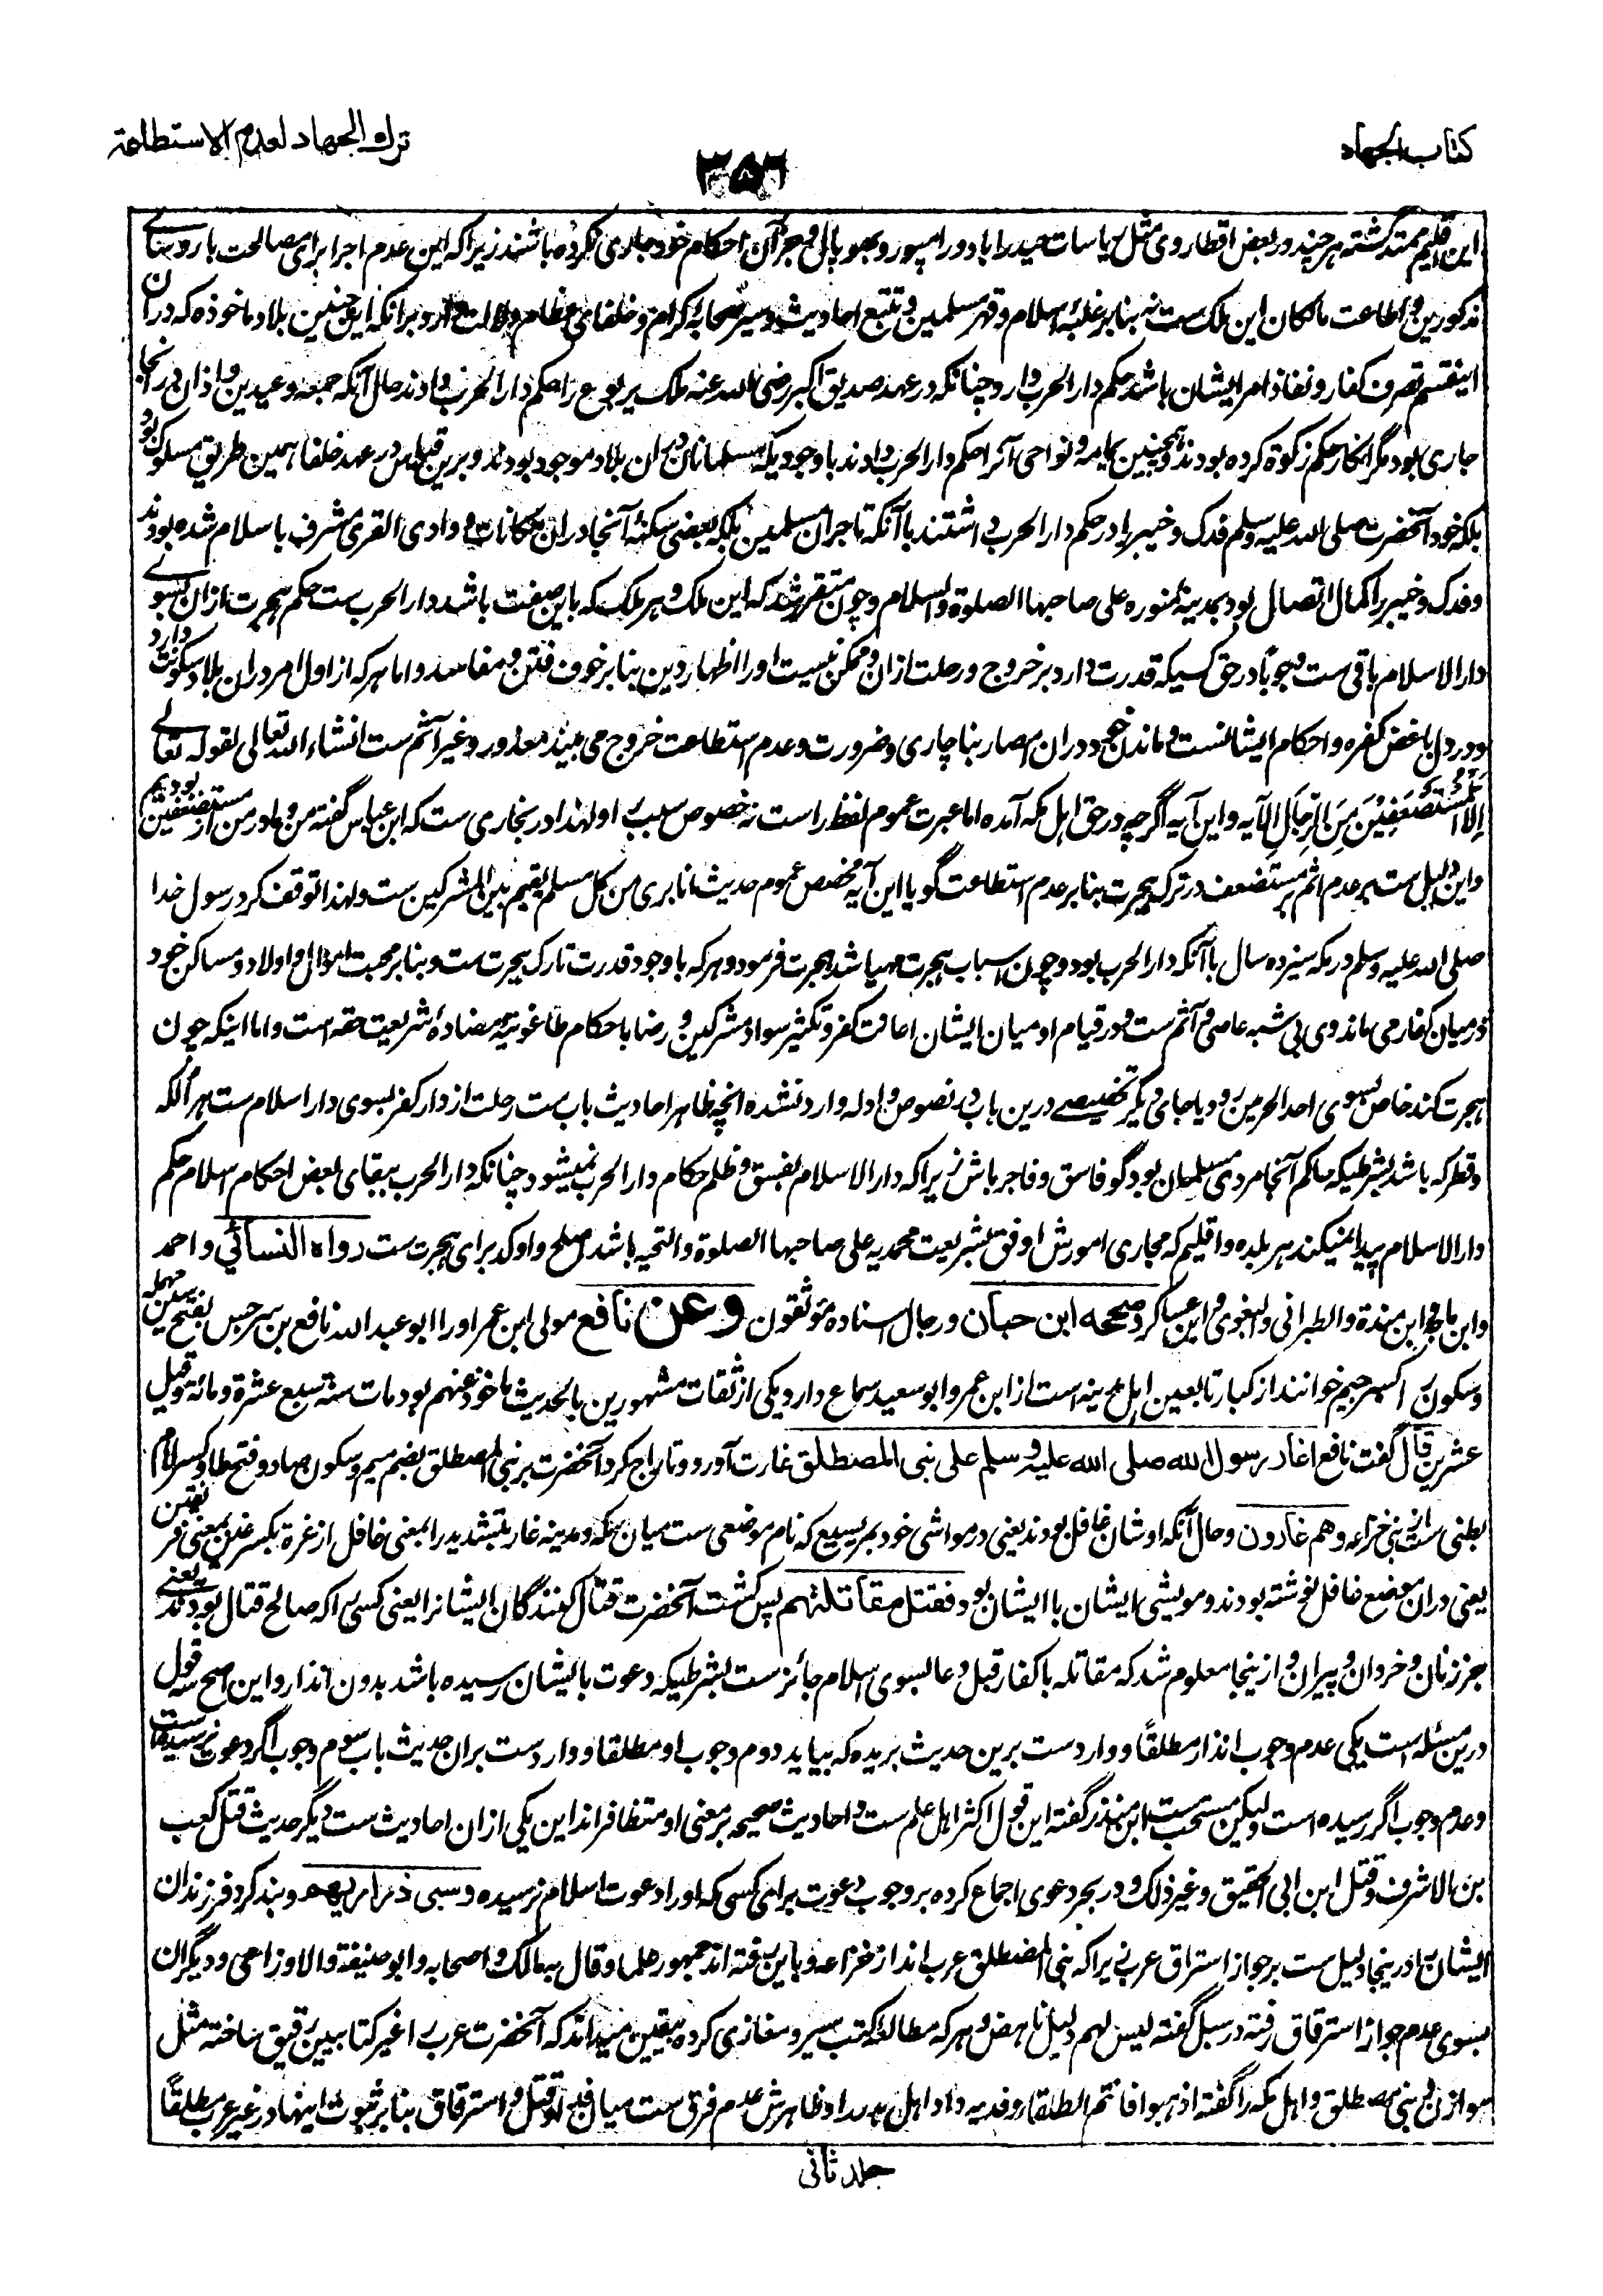 کتاب الجهاد
ترك الجهاد لعدم الاستطاعة
۳۵۶
این اقلیم ممتد گشته هر چند در بعض اقطار وی مثل ریاسات حیدراباد و رامپور و بهوپال و جز آن احکام خود جاری نکرده باشند زیراکه این عدم اجرا برای مصالحت با روسای
مذکورین و اطاعت مالکان این ملک ست نه بنابر غلبۂ اسلام و قهر مسلمین و تتبع احادیث و سیر صحابۂ کرام و خلفای عظام دلالت دارد برانکه این چنین بلاد ماخوذه که دران
اینقسم تصرف کفار و نفاذ امر ایشان باشد حکم دار الحرب دارد چنانکه در عهد صدیق اکبر رضی الله عنه ملک یربوع را حکم دار الحرب دادند حال آنکه جمعه و عیدین و اذان در آنجا
جاری بود مگر انکار حکم زکوة کرده بودند و همچنین یمامه و نواحی آنرا حکم دار الحرب دادند باوجودیکه مسلمانان دران بلاد موجود بودند و برین قیاس در عهد خلفا همین طریق مسلوک بود
بلکه خود آنحضرت صلی الله علیه وسلم فدک و خیبر را در حکم دار الحرب داشتند باآنکه تاجران مسلمین بلکه بعضی سکنۂ آنجا دران مکانات و وادی القری مشرف باسلام شده بودند
و فدک و خیبر را کمال اتصال بود بمدینۂ منوره علی صاحبها الصلوة والسلام و چون متقرر شد که این ملک و هر ملک که باین صفت باشد دار الحرب ست حکم هجرت ازان بسوے
دار الاسلام باقی ست وجوبًا در حق کسیکه قدرت دارد بر خروج و رحلت ازان و ممکن نیست او را اظهار دین بنابر خوف فتن و مفاسد و اما هر که از اول امر دران بلاد سکونت دارد
و در دل باغض کفره و احکام ایشانست و ماندن خود دران امصار بناچاری و ضرورت و عدم استطاعت خروج می بیند معذور و غیر آثم ست انشاء الله تعالی لقوله تعالے
اِلَّا الْمُسْتَضْعَفِيْنَ مِنَ الرِّجَالِ الآیه و این آیه اگرچه در حق اهل مکه آمده اما عبرت عموم لفظ راست نه خصوص سبب را و لهذا در بخاری ست که ابن عباس گفته من و مادر من از مستضعفین بودیم
و این دلیل ست بر عدم اثم بر مستضعف در ترک هجرت بنابر عدم استطاعت گویا این آیه مخصص عموم حدیث انا بری من کل مسلم یقیم بین المشرکین ست و لهذا توقف کرد رسول خدا
صلی الله علیه وسلم در مکه سیزده سال باآنکه دار الحرب بود و چون اسباب هجرت مهیا شد هجرت فرمود و هر که باوجود قدرت تارک هجرت ست و بنابر محبت اموال و اولاد و مساکن خود
در میان کفار می ماند وی بی شبه عاصی و آثم ست و در قیام او میان ایشان اعانت کفر و تکثیر سواد مشرکین و رضا باحکام طاغوتیۂ مضادۂ شریعت حقه است و اما اینکه چون
هجرت کند خاص بسوی احد الحرمین رود یا جای دیگر تخصیصے درین باب در نصوص و ادله وارد نشده انچه ظاهر احادیث باب ست رحلت از دار کفر بسوی دار اسلام ست هر الکه
و قطر که باشد بشرطیکه حاکم آنجا مردی مسلمان بود گو فاسق و فاجر باش زیراکه دار الاسلام بفسق و ظلم حکام دار الحرب نمیشود چنانکه دار الحرب ببقای بعض احکام اسلام حکم
دار الاسلام پیدا نمیکند هر بلده و اقلیم که مجاری امورش اوفق بشریعت محمدیه علی صاحبها الصلوة والتحیه باشد اصلح و اوکد برای هجرت ست رواه النسائي و احمد
وابن ماجه و ابن مندة والطبرانی والبغوی و ابن عساکر و صححه ابن حبان و رجال اسناده موثقون وعن نافع مولی ابن عمر او را ابو عبد الله نافع بن سرجس بفتح سین مهمله
و سکون را و کسر جیم خوانند از کبار تابعین اهل مدینه است از ابن عمر و ابو سعید سماع دارد یکی از ثقات مشهورین بالحدیث ماخوذ عنهم بود مات سنة سبع عشرة و مائة و قیل
عشرین قال گفت نافع اغار رسول الله صلى الله عليه وسلم على بنى المصطلق غارت آورد و تاراج کرد آنحضرت بر بنی المصطلق بضم میم و سکون صاد و فتح طا و کسر لام
بطنی ست از بنی خزاعه وهم غارون و حال آنکه اوشان غافل بودند یعنی در مواشی خود بمریسیع که نام موضعی ست میان مکه و مدینه غار بتشدید را بمعنی غافل از غرة بکسر غین بمعنی فریفتن
یعنی دران موضع غافل نوشته بودند و مویشی ایشان با ایشان بود فقتل مقاتلتهم پس کشت آنحضرت قتال کنندگان ایشانرا یعنی کسی را که صالح قتال بودند یعنے
جز زنان و خردان و پیران و ازینجا معلوم شد که مقاتله با کفار قبل دعا بسوی اسلام جائز ست بشرطیکه دعوت بایشان رسیده باشد بدون انذار و این اصح سه قول
درین مسئله است یکی عدم وجوب انذار مطلقًا و وارد ست برین حدیث بریده که بیاید دوم وجوب او مطلقا و وارد ست بران حدیث باب سوم وجوب اگر دعوت نرسیده است
و عدم وجوب اگر رسیده است ولیکن مستحب ست ابن منذر گفته این قول اکثر اهل علم ست و احادیث صحیحه بر معنی او متظافر اند این یکی ازان احادیث ست و دیگر حدیث قتل کعب
بن الاشرف و قتل ابن ابی الحقیق و غیر ذلک و در بحر دعوی اجماع کرده بر وجوب دعوت برای کسی که او را دعوت اسلام نرسیده وسبى ذراريهم و بند کرد فرزندان
ایشان را درینجا دلیل ست بر جواز استرقاق عرب زیراکه بنی المصطلق عرب اند از خزاعه و باین رفته اند جمهور علما و قال به مالک و اصحابه و ابو حنیفة والاوزاعی و دیگران
بسوی عدم جواز استرقاق رفته در سبل گفته لیس لهم دلیل ناهض و هر که مطالعۂ کتب سیر و مغازی کرده بیقین میداند که آنحضرت عرب را غیر کتابیین رقیق ساخته مثل
هوازن و بنی مصطلق و اهل مکه را گفته اذهبوا فانتم الطلقاء و فدیه داد اهل بدر را و ظاهرش عدم فرق ست میان فدا و قتل و استرقاق بنابر ثبوت اینها در غیر عرب مطلقًا
جلد ثانی